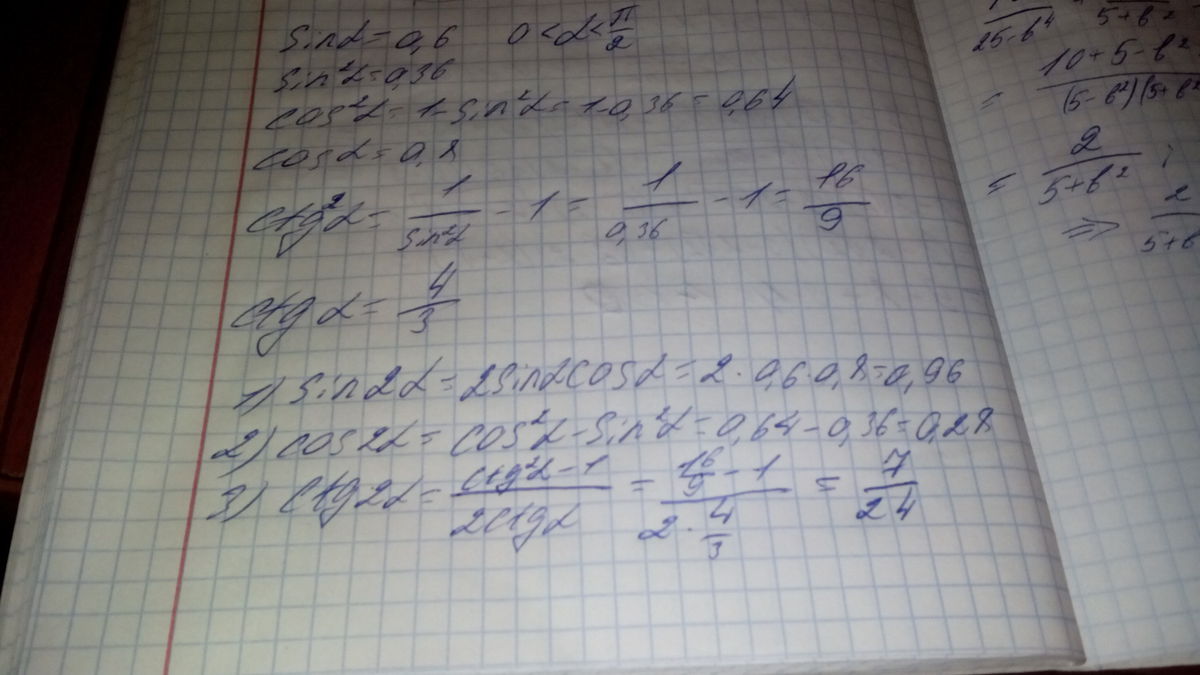 sinα = 0,6    0 < α < π/2
sin²α = 0,36
cos²α = 1 - sin²α = 1 - 0,36 = 0,64
cosα = 0,8
ctg²α = 1/sin²α - 1 = 1/0,36 - 1 = 16/9
ctgα = 4/3
1) sin2α = 2sinαcosα = 2 · 0,6 · 0,8 = 0,96
2) cos2α = cos²α - sin²α = 0,64 - 0,36 = 0,28
3) ctg2α = (ctg²α - 1)/(2ctgα) = (16/9 - 1)/(2 · 4/3) = 7/24
25 - b⁴
5 + b²
10 + 5 - b²
= (5 - b²)(5 + b²
= 2/(5 + b²) ;
⇒ 2/5 + b